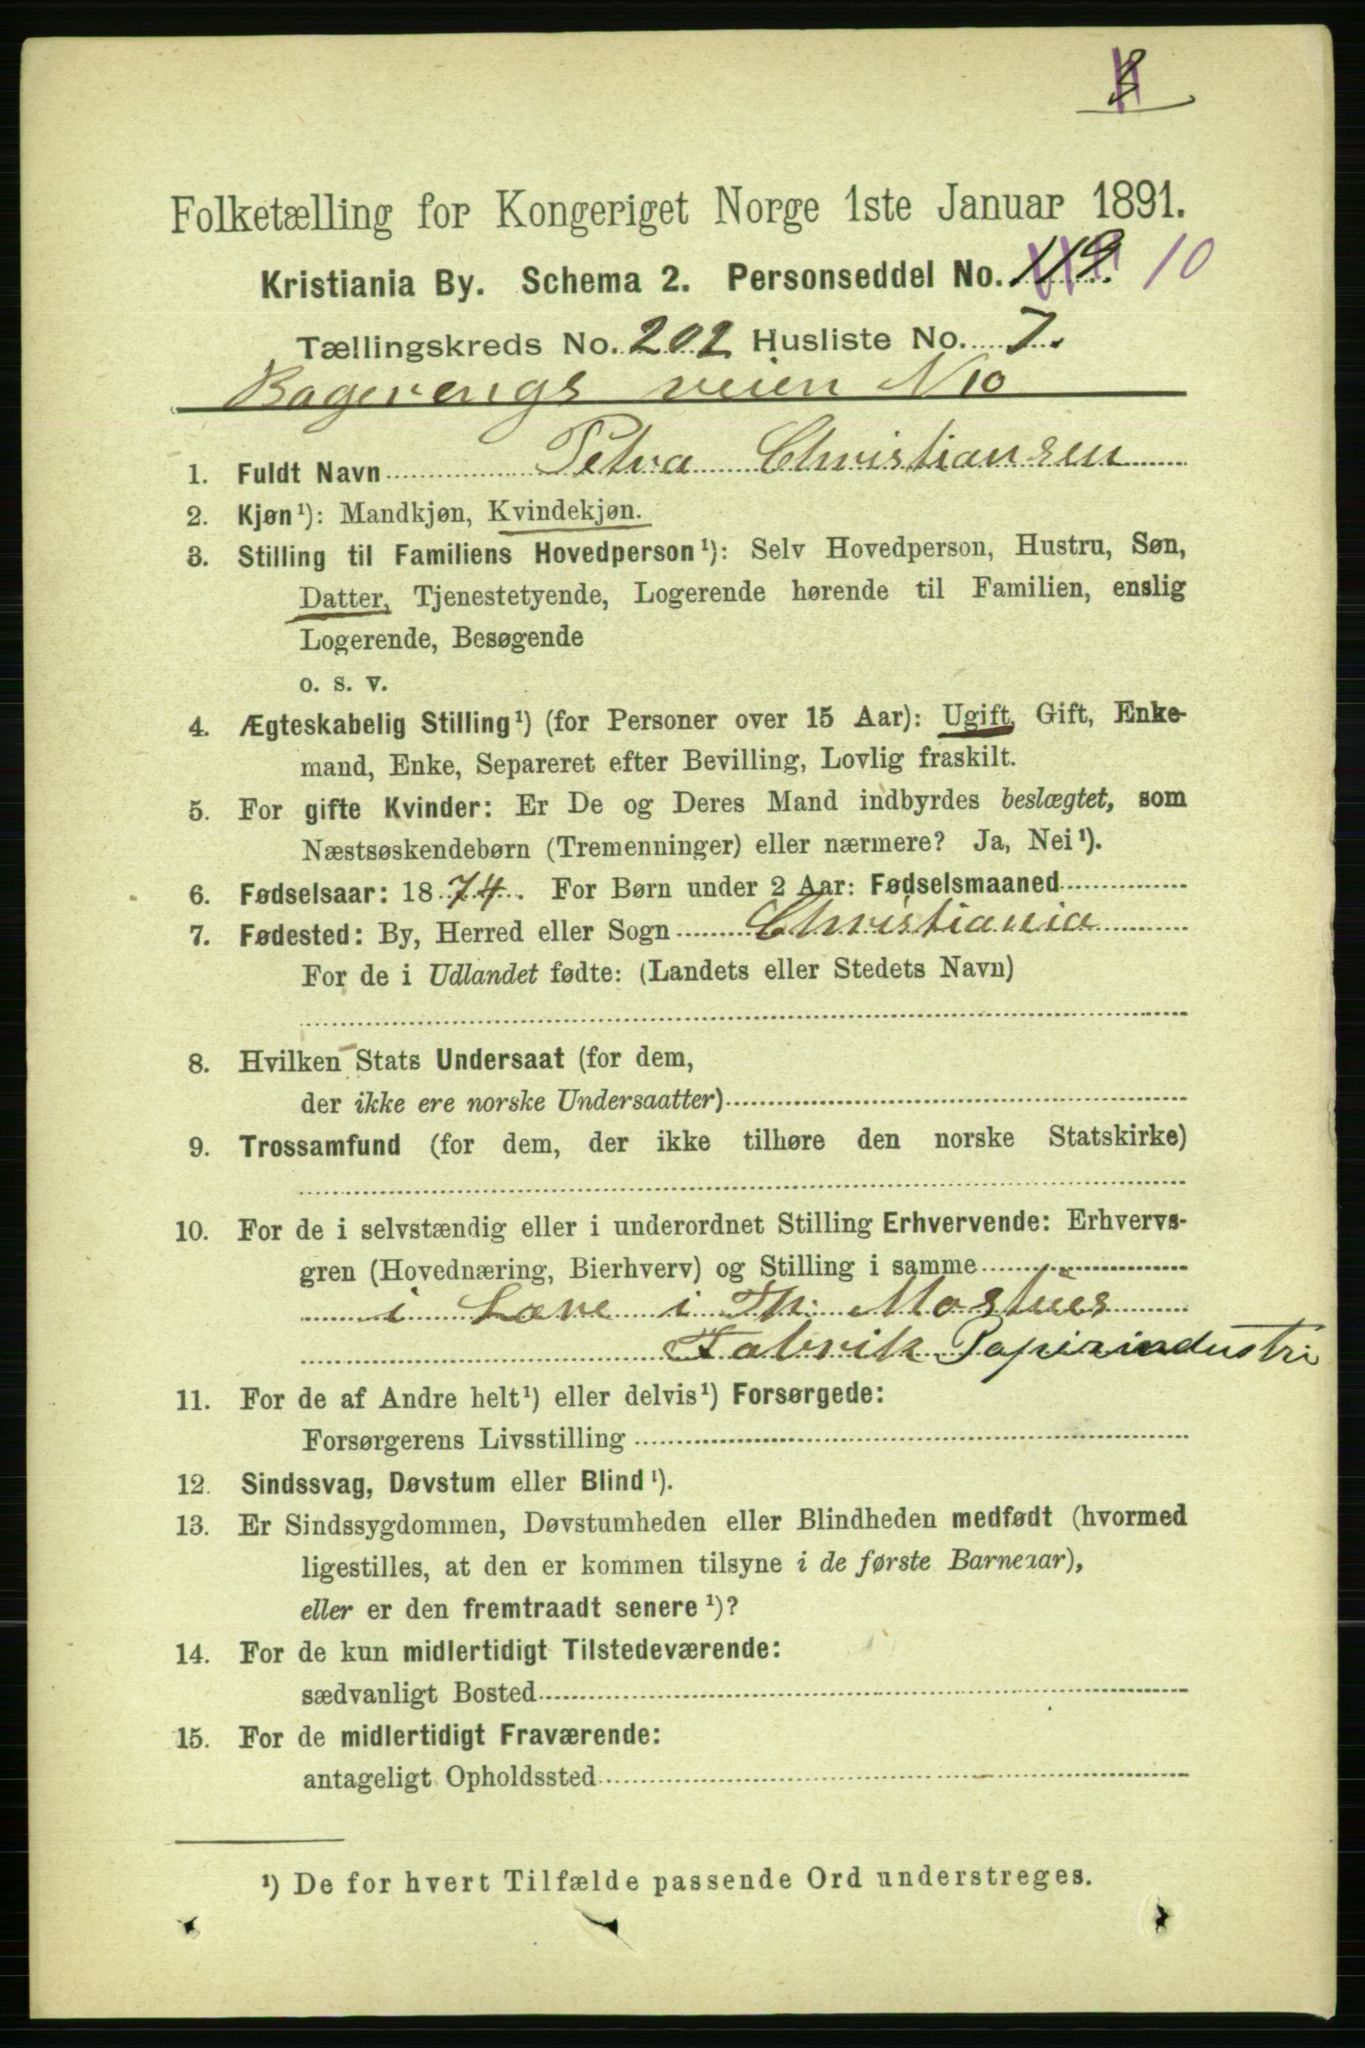 8
Folketælling for Kongeriget Norge 1ste Januar 1891.
Kristiania By. Schema 2. Personseddel No. 119. 10
Tællingskreds No. 202 Husliste No. 7.
veien N 10
1. Fuldt Navn Petra Christiansen
2. Kjøn¹): Mandkjøn, Kvindekjøn.
3. Stilling til Familiens Hovedperson¹): Selv Hovedperson, Hustru, Søn,
Datter, Tjenestetyende, Logerende hørende til Familien, enslig
Logerende, Besøgende
o. s. v.
4. Ægteskabelig Stilling¹) (for Personer over 15 Aar): Ugift, Gift, Enke-
mand, Enke, Separeret efter Bevilling, Lovlig fraskilt.
5. For gifte Kvinder: Er De og Deres Mand indbyrdes beslægtet, som
Næstsøskendebørn (Tremenninger) eller nærmere? Ja, Nei¹).
6. Fødselsaar: 1874. For Børn under 2 Aar: Fødselsmaaned
7. Fødested: By, Herred eller Sogn Christiania
For de i Udlandet fødte: (Landets eller Stedets Navn)
8. Hvilken Stats Undersaat (for dem,
der ikke ere norske Undersaatter)
9. Trossamfund (for dem, der ikke tilhøre den norske Statskirke)
10. For de i selvstændig eller i underordnet Stilling Erhvervende: Erhvervs-
gren (Hovednæring, Bierhverv) og Stilling i samme
i Lære i Th. Mostues
Fabrik Papirindustri
11. For de af Andre helt¹) eller delvis¹) Forsørgede:
Forsørgerens Livsstilling
12. Sindssvag, Døvstum eller Blind¹).
13. Er Sindssygdommen, Døvstumheden eller Blindheden medfødt (hvormed
ligestilles, at den er kommen tilsyne i de første Barneaar),
eller er den fremtraadt senere¹)?
14. For de kun midlertidigt Tilstedeværende:
sædvanligt Bosted
15. For de midlertidigt Fraværende:
antageligt Opholdssted
¹) De for hvert Tilfælde passende Ord understreges.